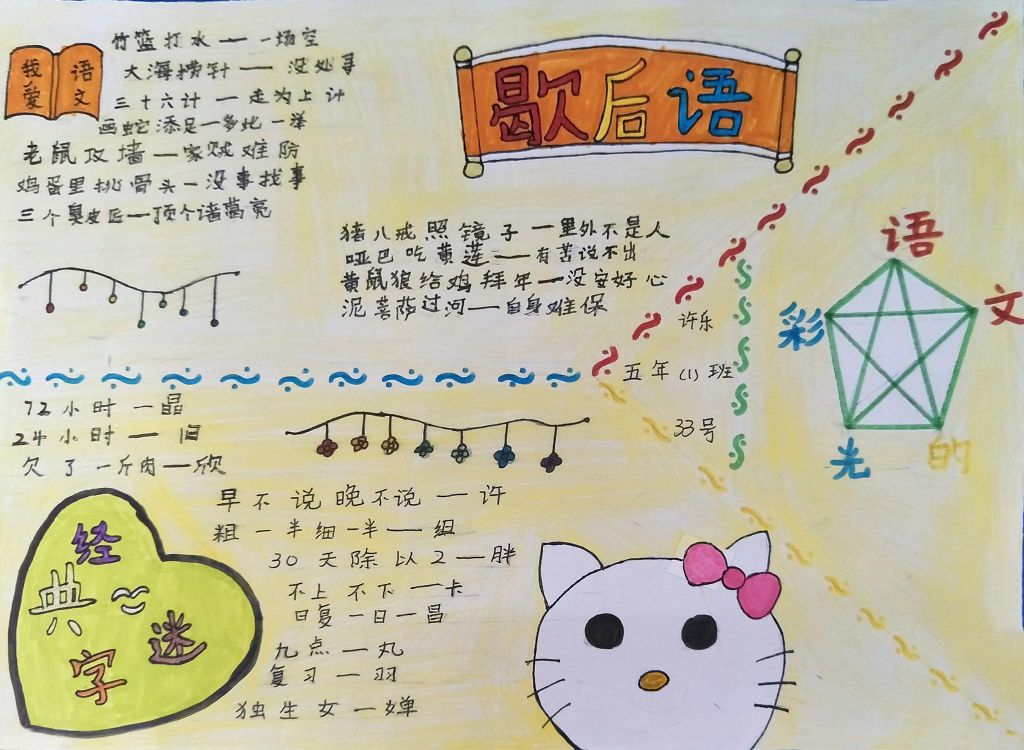 我爱
语文
竹篮打水——一场空
大海捞针——没处寻
三十六计——走为上计
画蛇添足——多此一举
老鼠攻墙——家贼难防
鸡蛋里挑骨头——没事找事
三个臭皮匠——顶个诸葛亮
歇后语
猪八戒照镜子——里外不是人
哑巴吃黄莲——有苦说不出
黄鼠狼给鸡拜年——没安好心
泥菩萨过河——自身难保
许乐
五年(1)班
33号
语
文
的
光
彩
72小时——晶
24小时——旧
欠了一斤肉——欣
经典
字谜
早不说晚不说——许
粗一半细一半——组
30天除以2——胖
不上不下——卡
日复一日——昌
九点——丸
复习——羽
独生女——婵